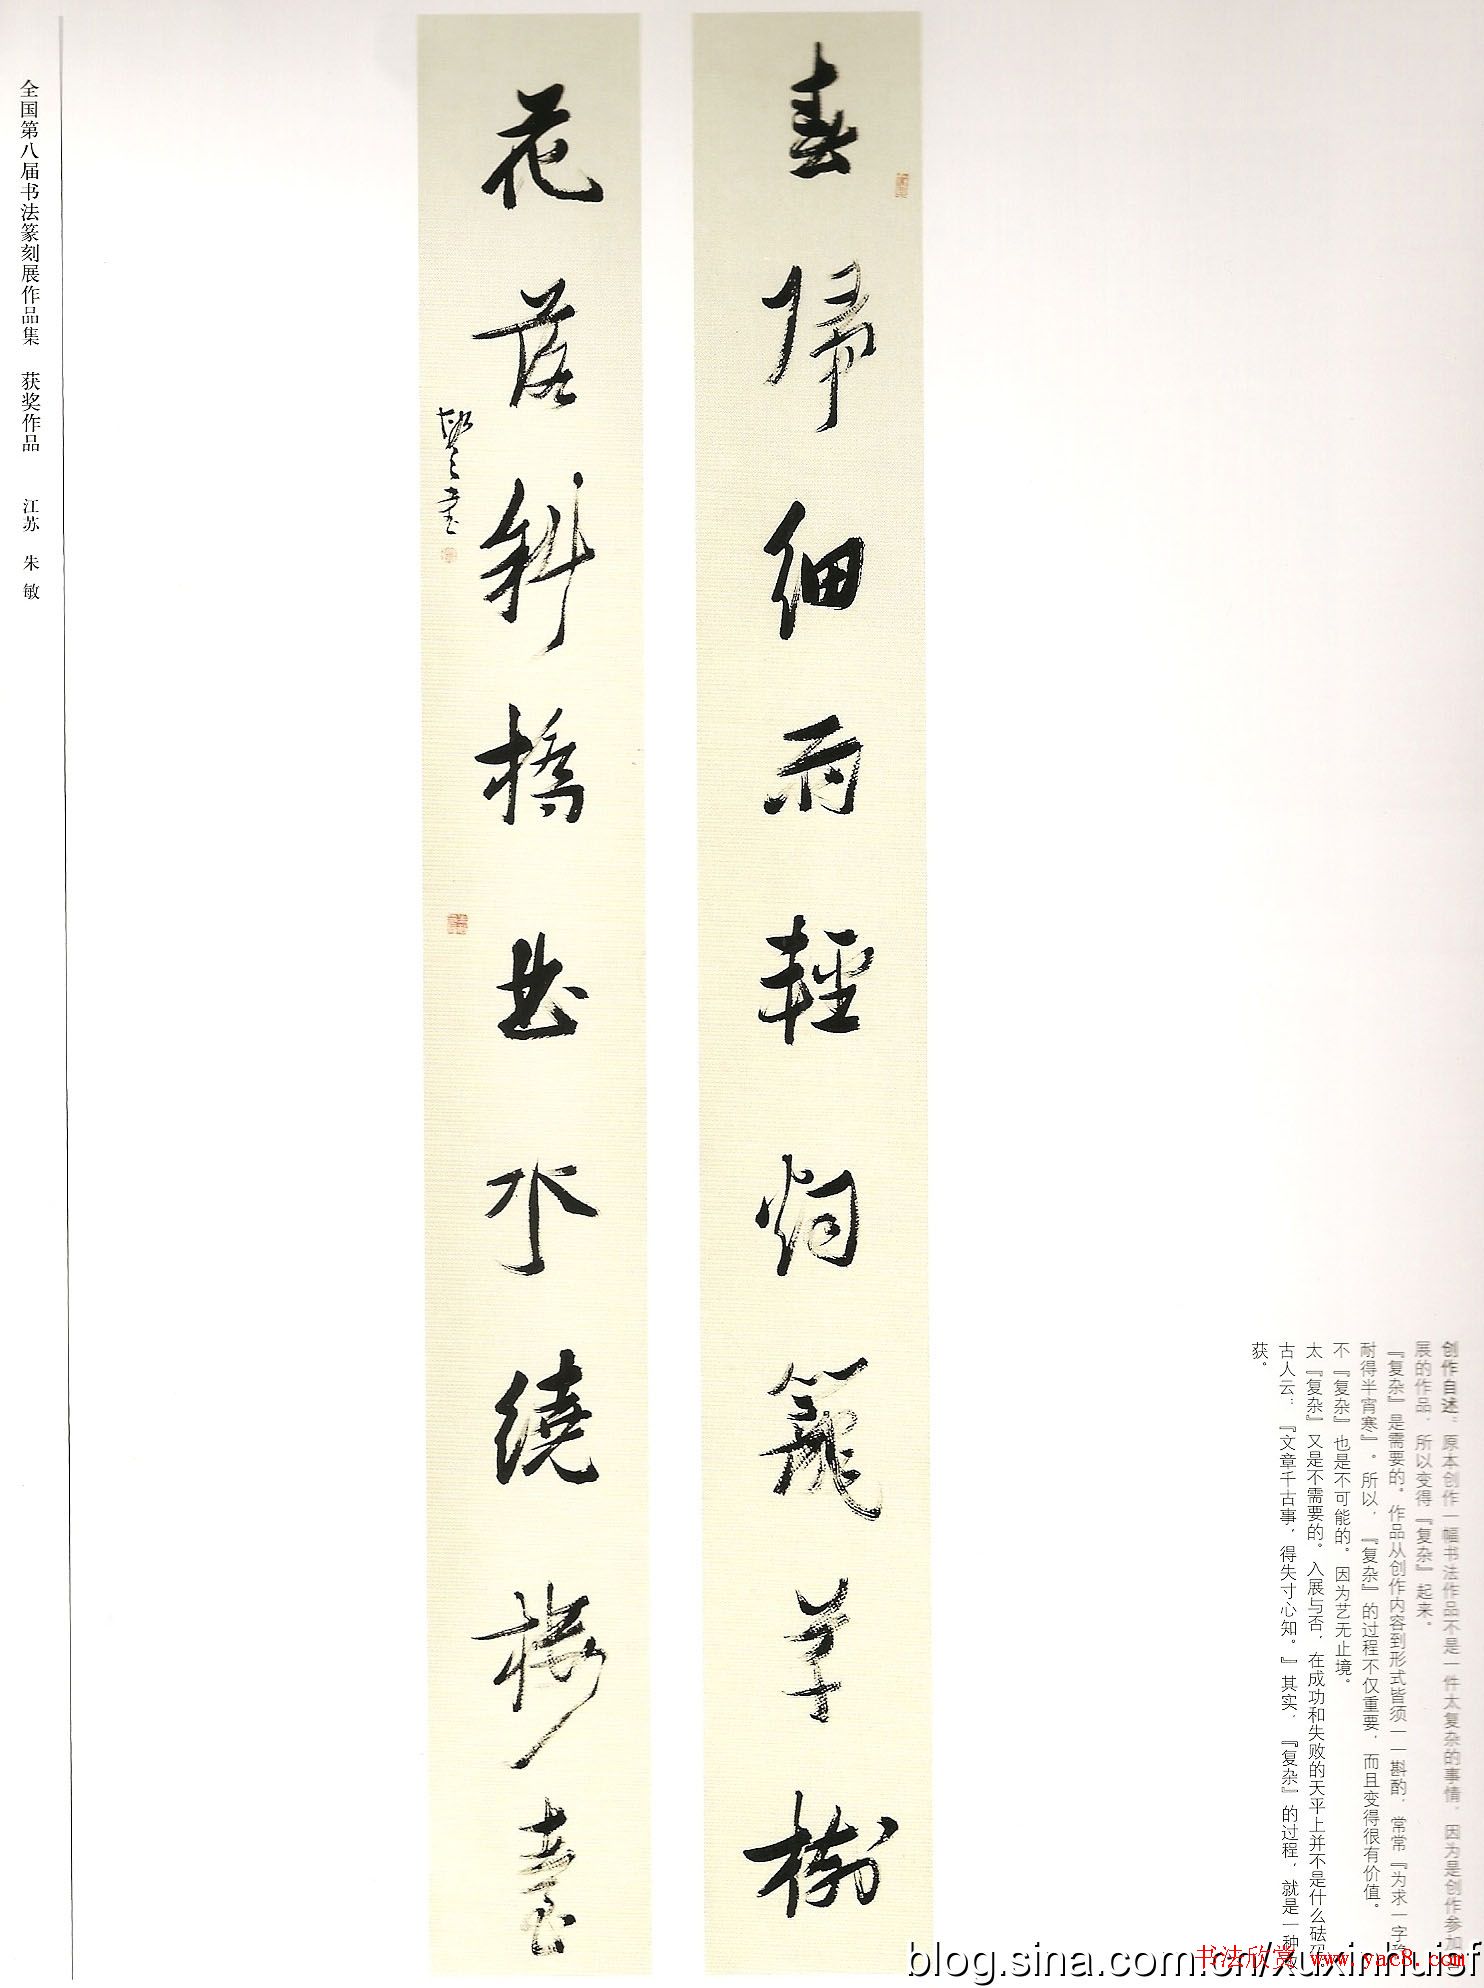 春歸細雨輕烟籠草樹
花落斜橋曲水繞樓臺
全国第八届书法篆刻展作品集 获奖作品 江苏 朱敏
创作自述：原本创作一幅书法作品不是一件太复杂的事情，因为是创作参加
展的作品，所以变得『复杂』起来。
『复杂』是需要的。作品从创作内容到形式皆须一一斟酌，常常『为求一字稳
耐得半宵寒』。所以，『复杂』的过程不仅重要，而且变得很有价值。
不『复杂』也是不可能的。因为艺无止境。
太『复杂』又是不需要的。入展与否，在成功和失败的天平上并不是什么砝
古人云：『文章千古事，得失寸心知。』其实，『复杂』的过程，就是一种
获。
书法欣赏 www.yac8.com
blog.sina.com.cn/xuxinhuisf